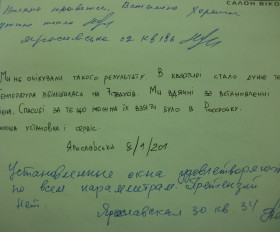 САЛОН ВІКО
Ярославська 02 кв 196
Ми не очікували такого результату. В квартирі стало дуже те
емпература збільшилась на 7 градусів. Ми вдячні за встановленні
вікна. Спасибі за те що можна їх взяти було в Рассрочку.
установка і сервіс.
Ярославська 8/1/201
Установленные окна удовлетворяют
по всем параметрам. Претензий
нет. Ярославская 30 кв. 34